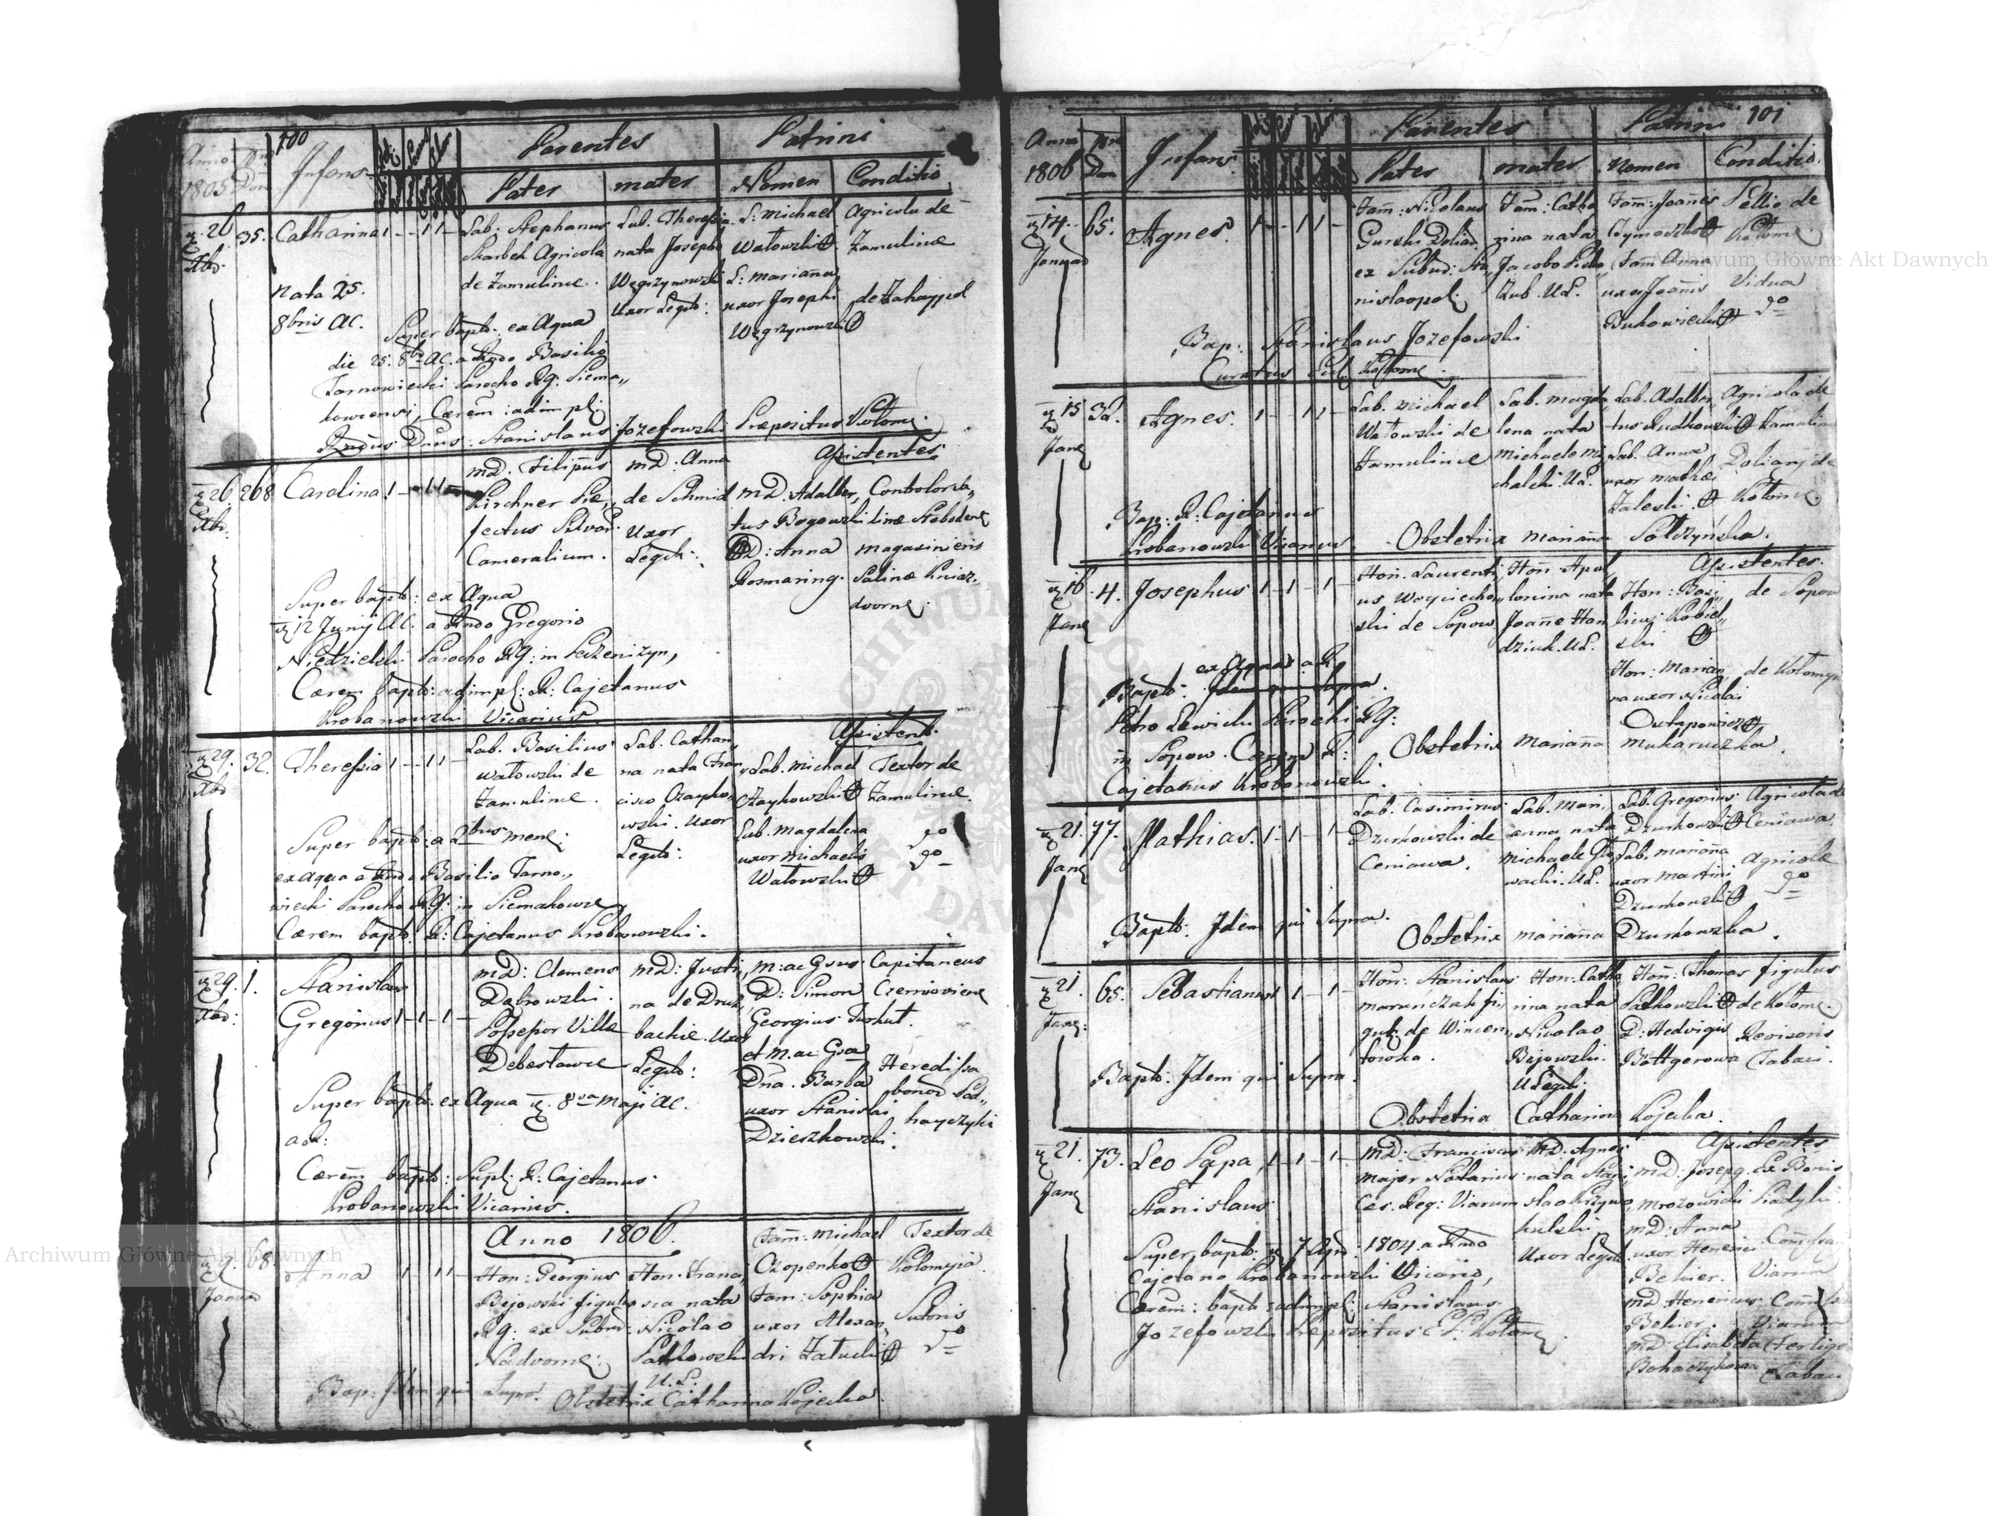 100
Anno 1805
Dom
Infans
Parentes
Patrini
Pater
mater
Nomen
Conditio
26 Xbr.
35.
Catharina 1 - - 1 1 -
Nata 25.
8bris AC.
Lab: Stephanus
Skarbek Agricola
de Zamulince.
Lab. Theressia
nata Josepho
Węgrzynowski
Uxor Legit:
L: Michael
Watowski
L: Mariana
uxor Josephi
Węgrzynowski
Agricola de
Zamulince
de Zahaypol
Super bapt: ex Aqua
die 25. 8bris AC. a Rndo Basilio
Tarnowiecki Parocho RG. Siema„
kowiensi, Cærem: adimpl:
Rndus Dnus Stanislaus Jozefowski Præpositus Kołom:
26 Xbr.
268
Carolina 1
MD. Filippus
Kirchner Præ„
fectus Silvar.
Cameralium.
MD. Anna
de Schmid
Uxor
Legit:
Assistentes
MD. Adalber„
tus Bogowski
MD: Anna
Rosmaring.
Controlor Sa„
linæ Slobodens
Magasinieris
Salinæ Kniaz„
dvorn:
Super bapt: ex Aqua
12 Junij AC. a Rndo Gregorio
Niedzielski Parocho RG: in Peczeniżyn,
Cærem bapt: adimpl: R: Cajetanus
Krobanowski Vicarius.
29. Xbr
32.
Theressia 1 - - 1 1 -
Lab. Basilius
Watowski de
Zamulince.
Lab. Cathari„
na nata Fran„
cisco Czayko„
wski. Uxor
Legit:
Assistent.
Lab. Michael
Czaykowski
Lab. Magdalena
uxor Michaelis
Watowski
Textor de
Zamulince.
do
do
Super bapt: a 2bus mens:
ex aqua a Rndo Basilio Tarno„
wiecki Parocho RG: in Siemakowce
Cærem bapt: R: Cajetanus Krobanowski.
29. Xbr:
1.
Stanislaus
Gregorius 1 - 1 - 1 -
MD: Clemens
Dąbrowski.
Possessor Villæ
Debesławce
MD: Justi„
na de Druk„
backie. Uxor
Legit:
M: ac Gsus
D: Simon
Georgius Turkut.
et M. ac Gsa
Dna. Barba
uxor Stanislai
Dzieszkowski.
Capitaneus
Czernioviens
Heredissa
bonor Pod„
hayczyki
Super bapt. ex Aqua 8va Maji AC.
Cærem bapt: Supl: R: Cajetanus
Krobanowski Vicarius.
Anno 1806.
9. Januar
68.
Anna 1 - 1 1 -
Hon: Georgius
Bejowski figulus
RG: ex Subur:
Nadvorn:
Hon. Franci„
sca nata
Nicolao
Patkowski
U. L.
Fam: Michael
Czopenko
Fam: Sophia
uxor Alexan„
dri Załucki
Textor de
Kołomyia.
Sutoris
do
Bap: Idem qui Supra. Obstetrix Catharina Kojecka.
101
Anno 1806
Dom
Infans.
Parentes
Patrini
Pater
mater
Nomen
Conditio.
14. Januar
65.
Agnes. 1 - - 1 1 -
Fam: Nicolaus
Gurski Doliar
ex Subur: Sta„
nislaopol.
Fam: Catha
rina nata
Jacobo
U.L.
Fam: Joannes
Szymowski
Fam Anna
uxor Joannis
Bukowiecki
Pellio de
Kołom:
Vidua
do
Bap: Stanislaus Jozefowski
Curatus Kołom:
15 Janr
32.
Agnes. 1 - - 1 1 -
Lab. Michael
Watowski de
Zamulince
Lab. Magda„
lena nata
Michaele Mi„
chalski. U.L.
Lab. Adalber„
tus Rudkowski
Lab. Anna
uxor Mathæi
Zaleski.
Agricola de
Zamulin
Doliarij de
Kołom:
Bap: R: Cajetanus
Krobanowski Vicarius.
Obstetrix Mariana Sołczyńska.
16. Janr
4.
Josephus 1 - 1 - 1
Hon. Laurenti
us Woyciecho„
ski de Sopow
Hon: Apol
lonina nata
Joanne Hon
dziuk. U.L.
Assistentes.
Hon: Basi„
lius Kobiel„
ski
Hon: Marian„
na uxor Nicolai
Ostapowicz
de Sopow
de Kołomyia
Bapt: ex Aqua a R.
Idem qui Supra.
Petro Lewicki Parocho RG:
in Sopow. Cærem R:
Cajetanus Krobanowski.
Obstetrix Mariana Mukaruczka.
21. Janr
77.
Mathias. 1 - 1 - 1
Lab. Casimirus
Dzurkowski de
Ceniawa.
Lab. Mari„
anna nata
Michaele
U.L.
Lab. Gregorius
Dzurkowski
Lab. Mariana
uxor Martini
Dzurkowski
Agricola de
Ceniawa
Agricolæ
do
Bapt: Idem qui Supra.
Obstetrix Mariana Dzurkowska.
21. Janr:
65.
Sebastianus 1 - 1 -
Hon: Stanislaus
Maranczak fi„
gul: de Wincen„
towka.
Hon: Catha
rina nata
Nicolao
Bejowski.
U Legit.
Hon: Thomas
Patkowski
D: Hedvigis
Böttgerowa
figulus
de Kołom:
Revisoris
Tabac.
Bapt: Idem qui Supra.
Obstetrix Catharina Kojecka.
21. Janr
73.
Leo Papa
et
Stanislaus
1 - 1 - 1
MD: Franciscus
Major Notarius
Ces. Reg: Viarum
MD: Agnes
nata Stani„
slao Krzywo„
kulski
Uxor Legit.
Assistentes
MD: Joseph.
Mrozowicki
MD: Anna
uxor Henrici
Behier.
MD Henricus
Behier.
MD: Elisabeta
Bohaczykowa
Ex Bonis
Comissar
Viarum
Comissar
Viarum
Tabac
Super bapt: 7 Apr. 1804. a Rndo
Cajetano Krobanowski Vicario,
Cærem: bapt: adimpl: Stanislaus
Jozefowski Præpositus Kołom:
Archiwum Główne Akt Dawnych
Archiwum Główne Akt Dawnych